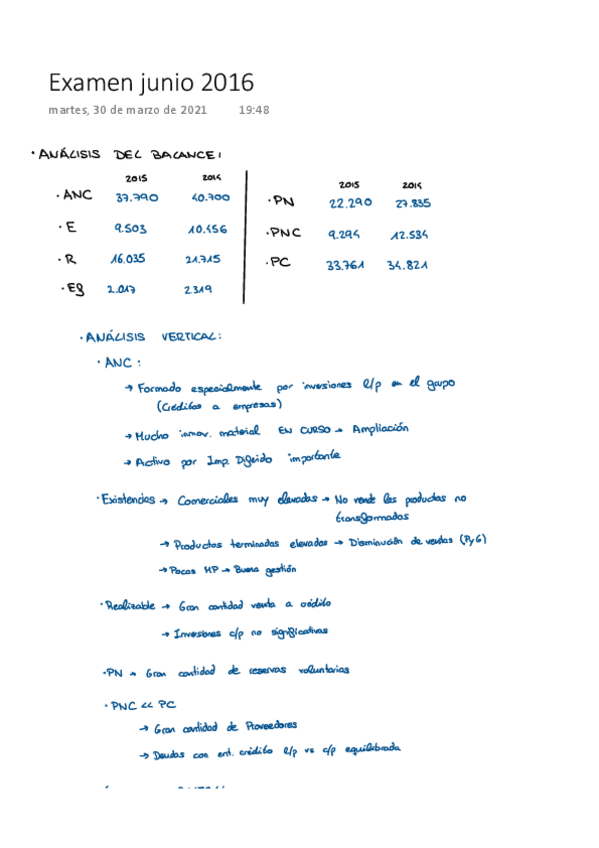 Examen junio 2016
martes, 30 de marzo de 2021 19:48
· ANÁLISIS DEL BALANCE:
2015 2014 2015 2014
· ANC 37.790 40.700 · PN 22.290 27.835
· E 9.503 10.456 · PNC 9.294 12.534
· R 16.035 21.715 · PC 33.761 34.821
· Ef 2.017 2319
· ANÁLISIS VERTICAL:
· ANC :
→ Formado especialmente por inversiones l/p en el grupo
(Créditos a empresas)
→ Mucho inmov. material EN CURSO → Ampliación
→ Activo por Imp. Diferido importante
· Existencias → Comerciales muy elevadas → No vende los productos no
transformados
→ Productos terminados elevados → Disminución de ventas (PyG)
→ Pocas MP → Buena gestión
· Realizable → Gran cantidad venta a crédito
→ Inversiones c/p no significativas
· PN → Gran cantidad de reservas voluntarias
· PNC << PC
→ Gran cantidad de Proveedores
→ Deudas con ent. crédito l/p vs c/p equilibrada